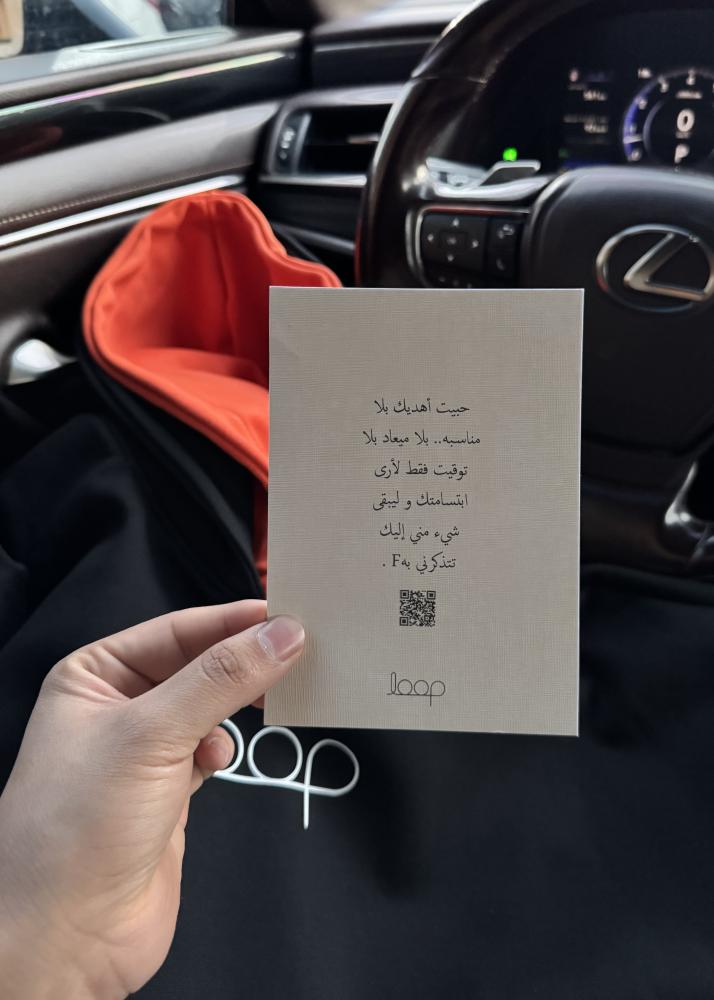 حبيت أهديك بلا
مناسبه.. بلا ميعاد بلا
توقيت فقط لأرى
ابتسامتك و ليبقى
شيء مني إليك
تتذكرني بهF .
loop